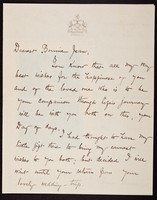 Dearest Donna Jean,
You know that all my
best wishes for the happiness of you
and of the loved one who is to be
your companion through life's journey
will be with you both on this, your
Day of days.
I had thought to have my
little gift there to bring my earnest
wishes to you both, but decided I will
wait until your return from your
lovely wedding trip